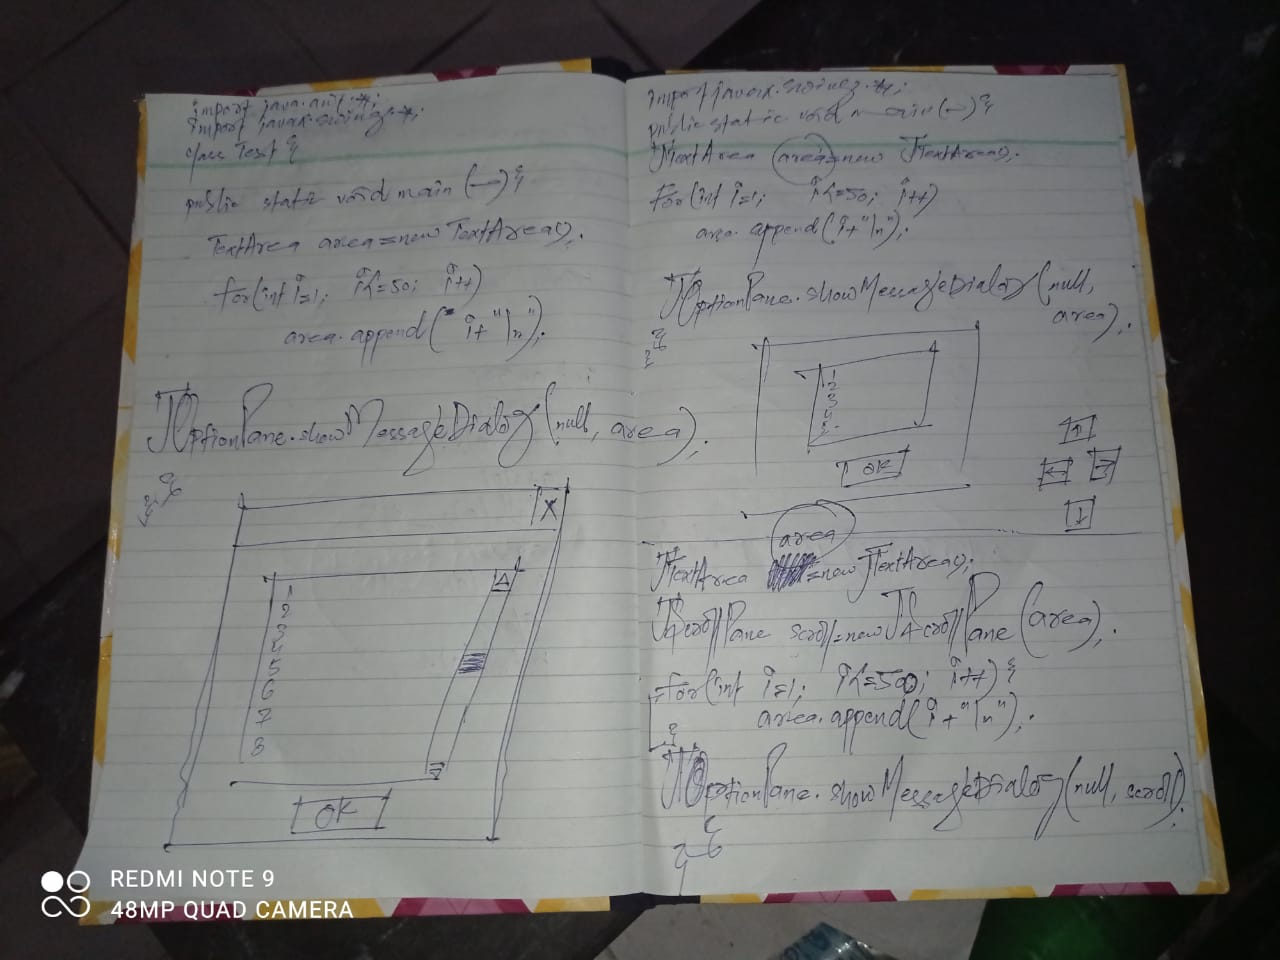 import java.awt.*;
import javax.swing.*;
class Test {
public static void main (—) {
TextArea area=new TextArea();
for(int i=1; i<=50; i++)
area.append( i+"\n");
JOptionPane.showMessageDialog(null, area);
}
}
X
1
2
3
4
5
6
7
8
OK
import javax.swing.*;
public static void main(—){
JTextArea area=new JTextArea();
for(int i=1; i<=50; i++)
area.append(i+"\n");
JOptionPane.showMessageDialog(null,
area);
}
}
1
2
3
4
5
OK
↑
← →
↓
area
JTextArea =new JTextArea();
JScrollPane scroll=new JScrollPane(area);
for(int i=1; i<=500; i++){
area.append(i+"\n");
}
JOptionPane.showMessageDialog(null, scroll);
}
}
REDMI NOTE 9
48MP QUAD CAMERA